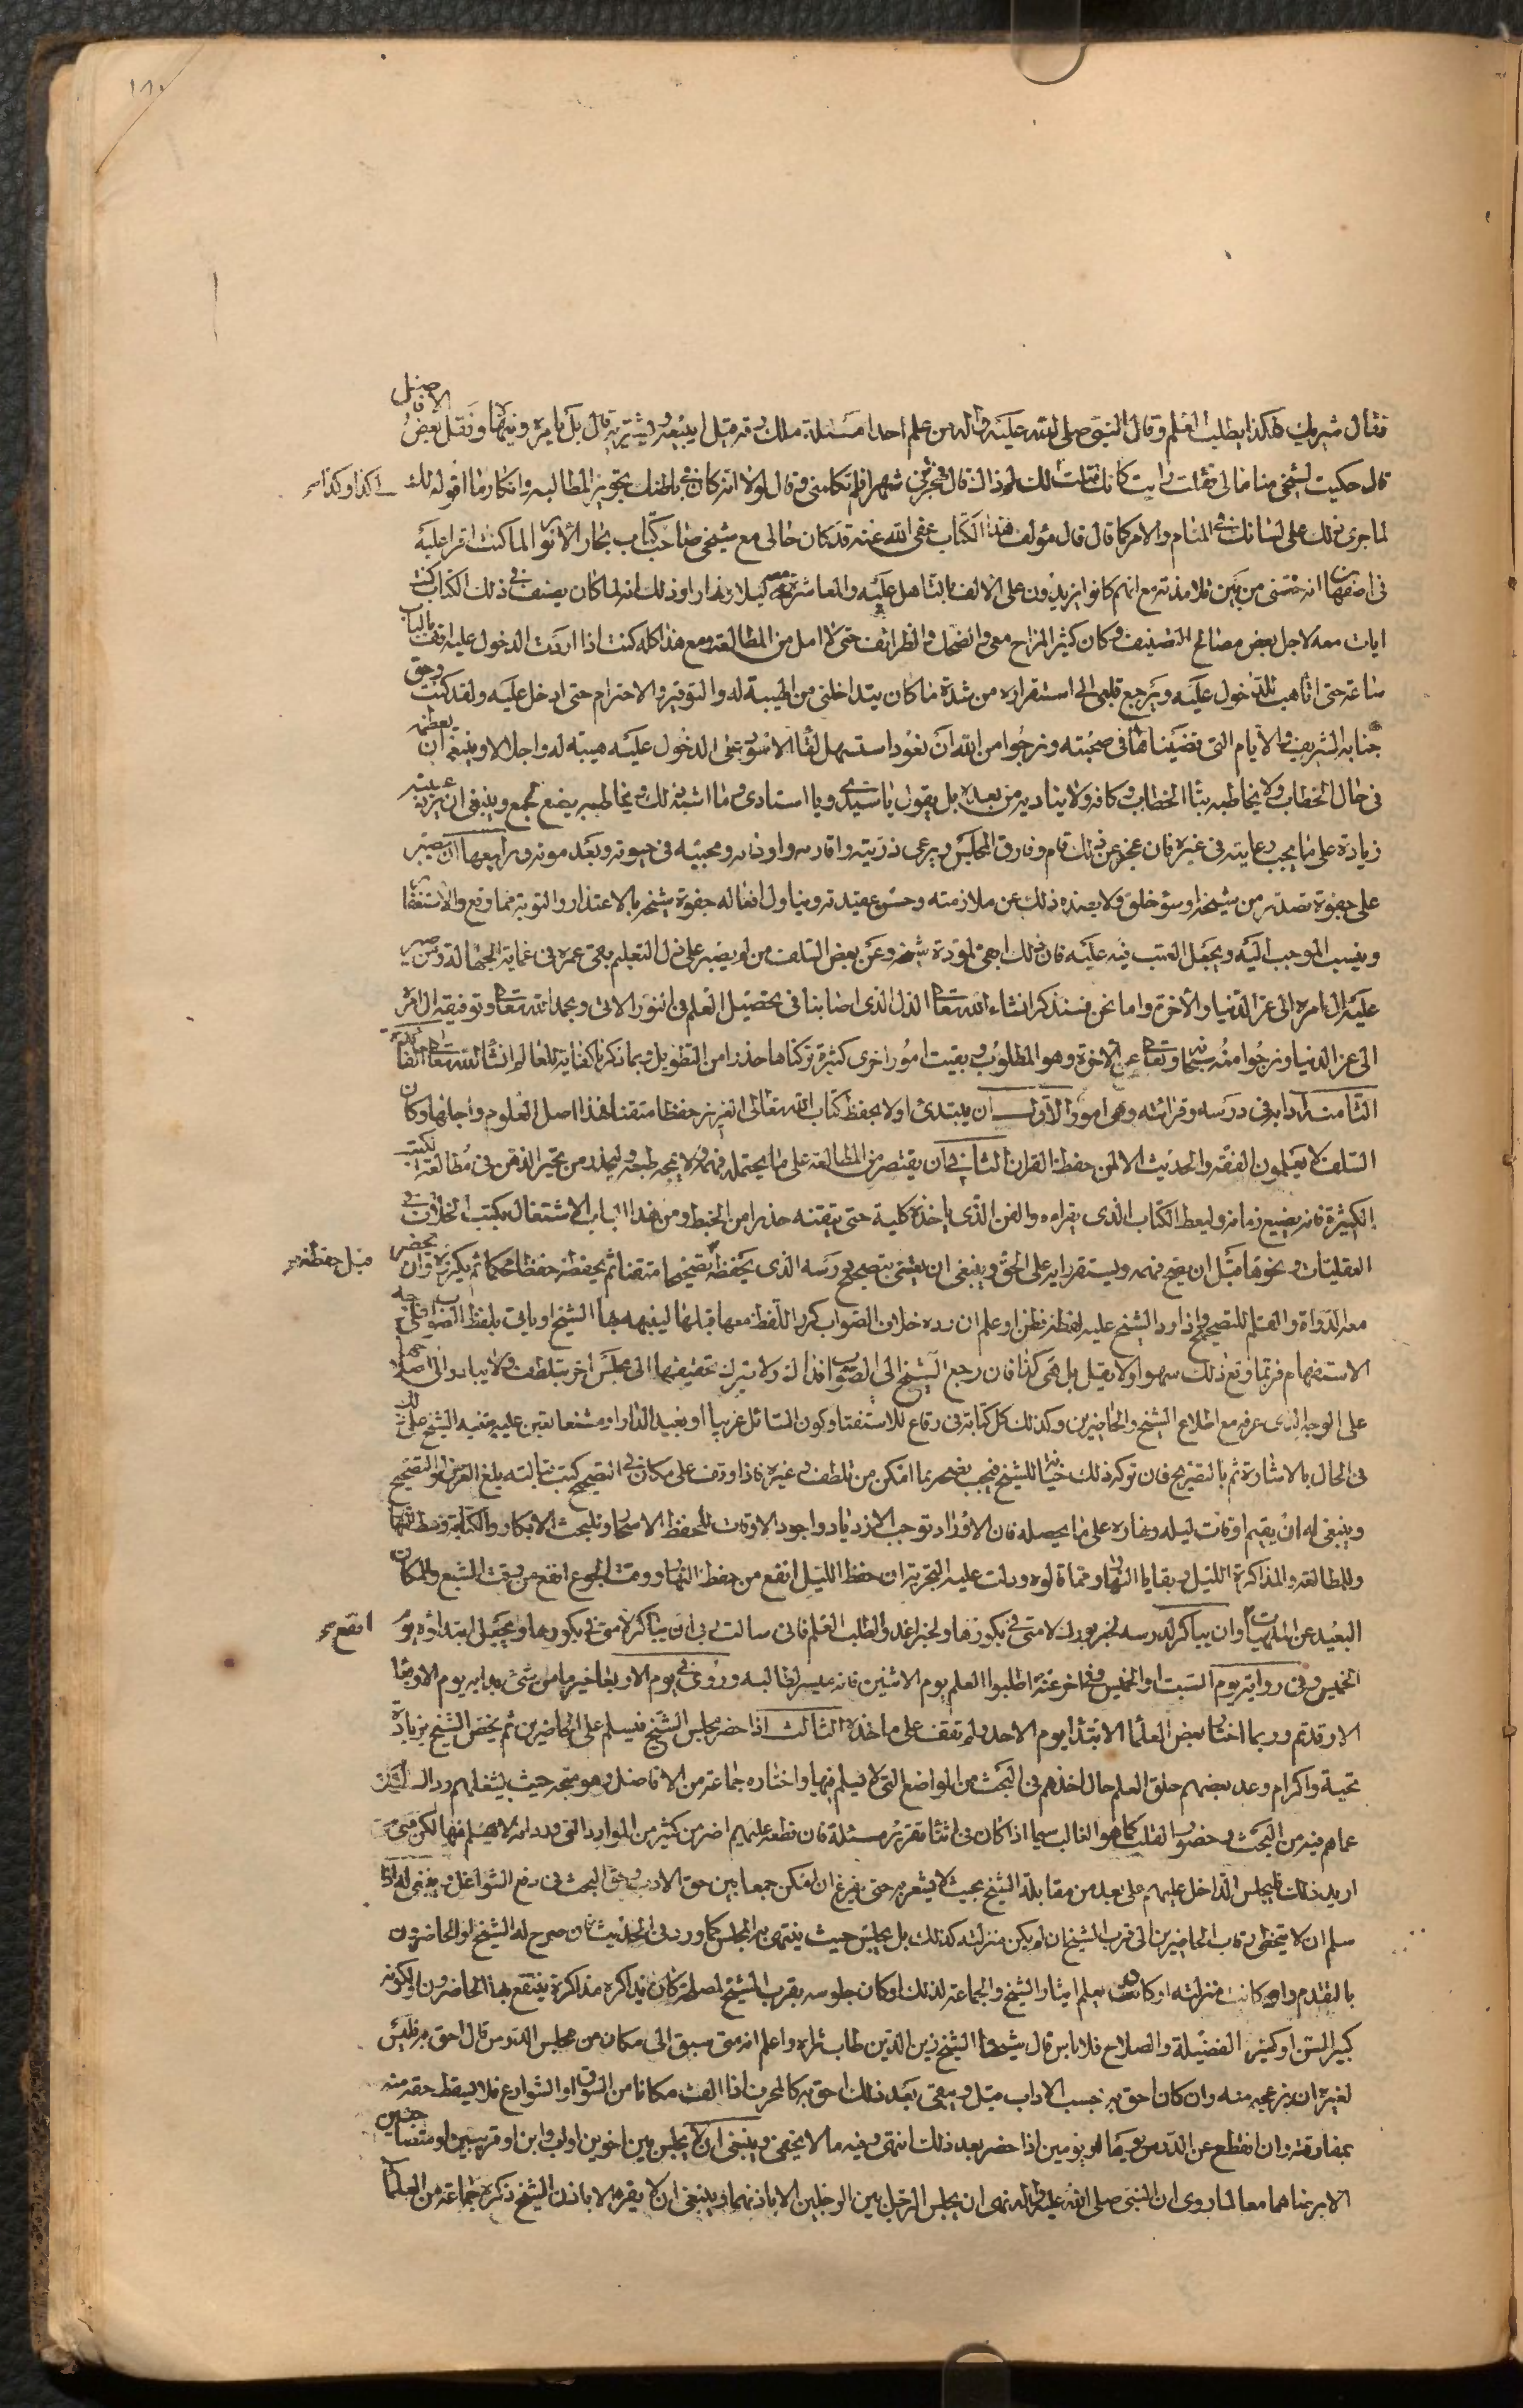 ١٨٠
فقال شريك هكذا يطلب العلم وقال النبي صلى الله عليه وآله من علم احدا مسئلة ملك رقه قيل ايبيعه ويشتريه قال بل يامره وينهاه ونقل بعض الافاضل
قال حكيت لشيخي مناما لي فقلت رايت كانك قلت لي كذا وكذا فقلت لك لم ذاك قال فهجرني شهرا فلم يكلمني وقال لولا انه كان في باطنك تجويز المطالبة وانكار ما اقوله لك
لما جرى ذلك على لسانك في المنام والامر كما قال قال مؤلف هذا الكتاب عفى الله عنه قد كان حالي مع شيخي صاحب كتاب بحار الأنوار لما كنت اقرا عليه
في اصفهان انه خصني من بين تلامذته مع انهم كانوا يزيدون على الالف بالتاهل عليه والمعاشرة معه ليلا ونهارا وذلك انه لما كان يصنف ذلك الكتاب كنت
ابات معه لاجل بعض مصالح التصنيف وكان كثير المزاح معي والضحك والظرائف حتى لا امل من المطالعة ومع هذا كله كنت اذا اردت الدخول عليه اقف بالباب
ساعة حتى اتاهب للدخول عليه ويرجع قلبي الى استقراره من شدة ما كان يتداخلني من الهيبة له والتوقير والاحترام حتى ادخل عليه ولقد كنت وحق
جنابه الشريف والايام التي قضيناها في صحبته ونرجوا من الله ان تعود استسهل لقاء الاسود عن الدخول عليه هيبة له واجلالا وينبغي ان يعظمه
في حال الخطاب ولا يخاطبه بتاء الخطاب وكافه ولا يناديه من بعد بل يقول يا سيدي ويا استادي وما اشبه ذلك ويخاطبه بضع الجمع وينبغي ان غيبته
زيادة على ما يجب رعايته في غيره فان عجز عن ذلك قام وفارق المجلس ويرعى ذريته واقاربه واوداءه ومحبيه في حيوته وبعد موته ورابعها ان يصبر
على جفوة تصدر من شيخه او سوء خلق ولا يصده ذلك عن ملازمته وحسن عقيدته ويتاول افعاله جفوة شيخه بالاعتذار والتوبة مما وقع والاستغفار
وينسب الموجب اليه ويجعل العتب فيه عليه فان ذلك ابقى لمودة شيخه وعن بعض السلف من لم يصبر على ذل التعليم بقى عمره في عماية الجهالة ومن صبر
عليه ال امره الى عز الدنيا والاخرة واما نحن فسنذكر انشاء الله تعالى الذل الذي اصابنا في تحصيل العلم في النور الاتي وبحمد الله تعالى وتوفيقه ال امره
الى عز الدنيا ونرجوا منه سبحانه وتعالى عز الاخرة وهو المطلوب وبقيت امور اخرى كثيرة تركناها حذرا من التطويل وبما ذكرنا كفاية للعالم انشاء الله تعالى
الثامنة ادابه في درسه وقراءته وهي امور الاول ان يبتدئ اولا بحفظ كتاب الله تعالى العزيز حفظا متقنا فهذا اصل العلوم واجلها وكان
السلف لا يعلمون الفقه والحديث الا لمن حفظ القران الثاني ان يقتصر من المطالعة على ما يحتمله فهمه ولا يمجه طبعه وليحذر من تحير الذهن في مطالعة الكتب
الكثيرة فانه يضيع زمانه وليعط الكتاب الذي يقراءه والفن الذي ياخذه كلية حتى يتقنه حذرا من الخبط ومن هذا الباب الاشتغال بكتب الخلاف في
العقليات ونحوها قبل ان يصح فهمه ويستقر رايه على الحق وينبغي ان يعتني بتصحيح درسه الذي يحفظه قبل حفظه تصحيحا متقنا ثم يحفظه حفظا محكما ثم يكرره وان يحضر
معه الدواة والقلم للتصحيح واذا رد الشيخ عليه لفظة فظن او علم ان رده خلاف الصواب كرر اللفظ مع ما قبلها ليتنبه بها الشيخ او ياتي بلفظ الصواب على جهة
الاستفهام فربما وقع ذلك سهوا ولا يقل بل هي كذا فان رجع الشيخ الى الصواب فذاك والا ترك تحقيقها الى مجلس اخر بتلطف ولا يبادر الى اصلاحها
على الوجه الذي عرفه مع اطلاع الشيخ والحاضرين وكذلك كل كتابة في رقاع للاستفتاء وكون السائل غريبا او بعيد الدار او مشنعا تعين عليه تنبيه الشيخ على ذلك
في الحال بالاشارة ثم بالتصريح فان تركه ذلك خيانة للشيخ فيجب نصحه بما امكن من تلطف وغيره فاذا وقف على مكان في التصحيح كتب قبالته بلغ العرض والتصحيح
وينبغي له ان يقسم اوقات ليله ونهاره على ما يحصله فان الاوراد توجب الازدياد واجود الاوقات للحفظ الاسحار وللبحث الابكار والكتابة وسط النهار
وللمطالعة والمذاكرة الليل وبقايا النهار ومما قالوه ودلت عليه التجربة ان حفظ الليل انفع من حفظ النهار ووقت الجوع انفع من وقت الشبع والمكان
البعيد عن الملهيات انفع وان يباكر لدرسه لخبر بورك لامتي في بكورها ولخبر اغدوا لطلب العلم فاني سالت ربي ان يبارك لامتي في بكورها ويجعل ابتداؤه يوم
الخميس وفي رواية يوم السبت او الخميس وفي خبر اخر عنه اطلبوا العلم يوم الاثنين فانه ميسر لطالبه وروى في يوم الاربعاء خبر ما من شئ بدا به يوم الاربعاء
الا وقد تم وربما اختار بعض العلماء الابتداء يوم الاحد ولم نقف على ماخذه الثالث اذا حضر مجلس الشيخ فليسلم على الحاضرين ثم يخص الشيخ بزيادة
تحية واكرام وعد بعضهم حلق العلم حال اخذهم في البحث من المواضع التي لا يسلم فيها واختاره جماعة من الافاضل وهو متجه حيث يشغلهم رد السلام
عما هم فيه من البحث وحضور القلب كما هو الغالب سيما اذا كان في اثناء تقرير مسئلة فان قطعه عليهم اضر من كثير من الموارد التي ورد انه لا يسلم فيها لكن متى
اريد ذلك فليجلس الداخل عليهم على بعد من مقابلة الشيخ بحيث لا يشعر به حتى يفرغ ان امكن جمعا بين حق الادب وحق البحث في دفع الشواغل وينبغي له اذا
سلم ان لا يتخطى رقاب الحاضرين الى قرب الشيخ ان لم يكن منزلته كذلك بل يجلس حيث ينتهي به المجلس كما ورد في الحديث فان صرح له الشيخ او الحاضرون
بالتقدم او كانت منزلته او كان يعلم ايثار الشيخ والجماعة لذلك او كان جلوسه بقرب الشيخ لمصلحة كان يذاكره مذاكرة ينتفع بها الحاضرون او لكونه
كبير السن او كثير الفضيلة والصلاح فلا باس قال شيخنا الشيخ زين الدين طاب ثراه واعلم انه متى سبق الى مكان من مجلس الدرس قال احق به فليس
لغيره ان يزعجه منه وان كان احق به بحسب الاداب قيل ويبقى بعد ذلك احق به كالمحرف اذا الف مكانا من السوق او الشوارع فلا يسقط حقه منه
بمفارقته وان انقطع عن الدرس يوما او يومين اذا حضر بعد ذلك انتهى وفيه ما لا يخفى وينبغي ان لا يجلس بين اخوين او اب وابن او قريبين او متصاحبين
الا برضاهما معا لما روى ان النبي صلى الله عليه وآله نهى ان يجلس الرجل بين الرجلين الا باذنهما وينبغي ان لا يقرء الا باذن الشيخ ذكره جماعة من العلماء